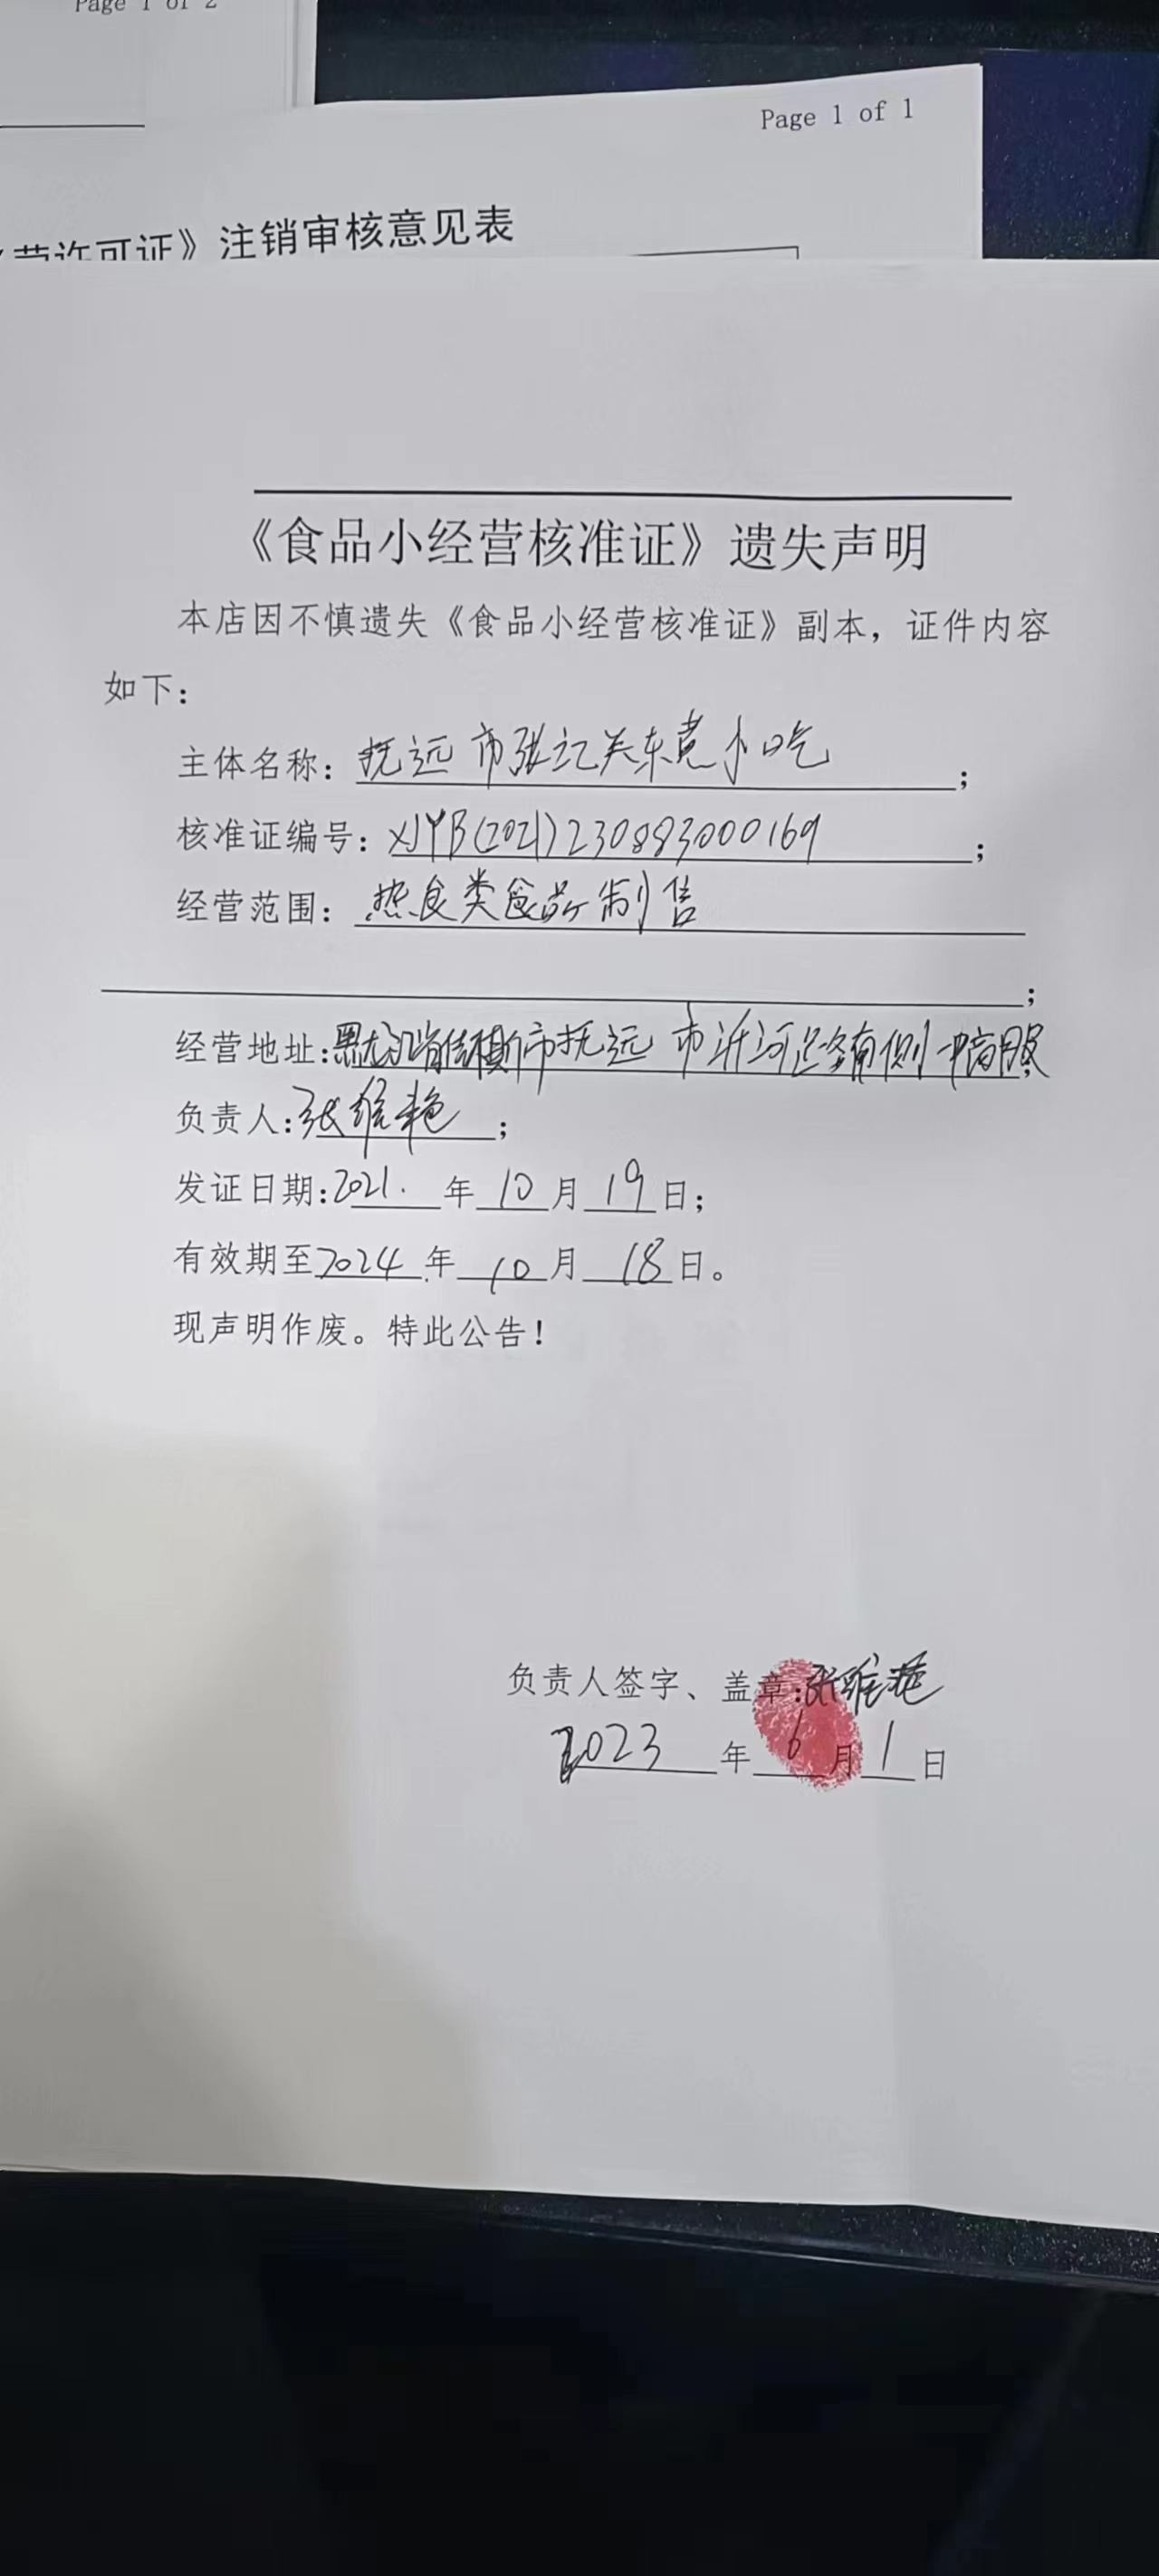 Page 1 of 2
Page 1 of 1
营许可证》注销审核意见表
《食品小经营核准证》遗失声明
本店因不慎遗失《食品小经营核准证》副本，证件内容
如下：
主体名称：抚远市张记关东煮小吃；
核准证编号：XJYB(2021)230883000169；
经营范围：热食类食品制售
；
经营地址：黑龙江省佳木斯市抚远市沂河路南侧中商
负责人：张维艳；
发证日期：2021.年10月19日；
有效期至2024年10月18日。
现声明作废。特此公告！
负责人签字、盖章：张维艳
2023年6月1日